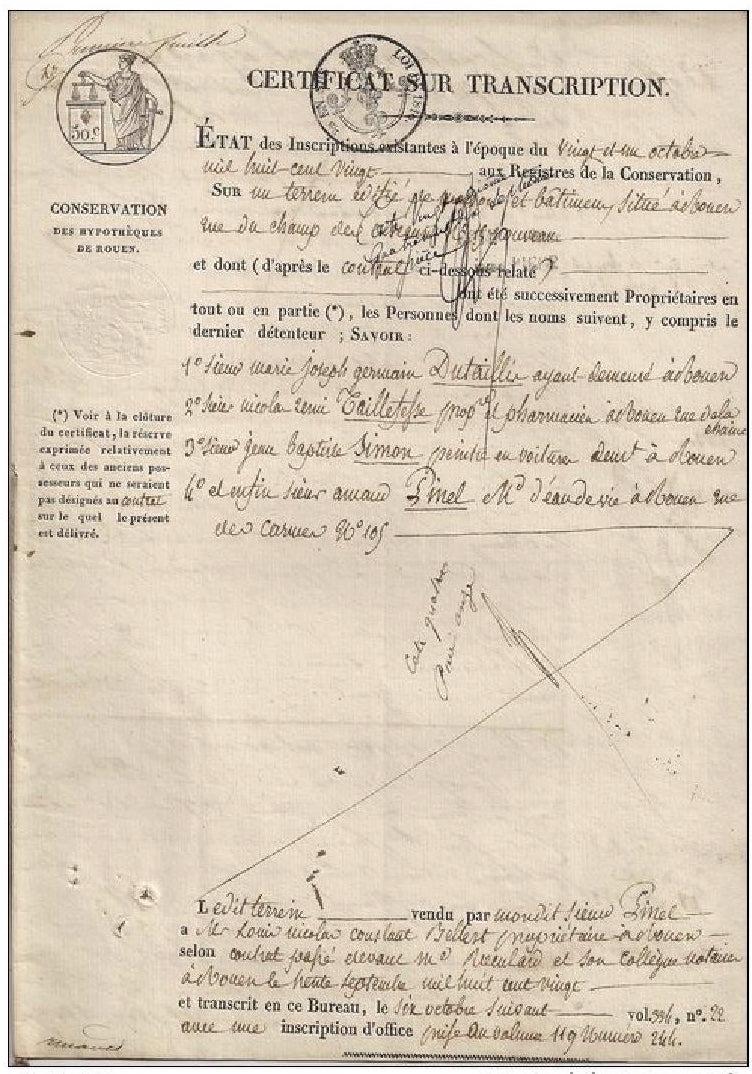 Première feuille
50 c.
LOI DE 1816
CERTIFICAT SUR TRANSCRIPTION.
ÉTAT des Inscriptions existantes à l'époque du vingt et un octobre
mil huit-cent vingt aux Registres de la Conservation,
SUR un terrein édifié de et bâtimens, situé à Rouen
rue du champ des nouveau
et dont (d'après le contrat ci-dessous relaté)
ont été successivement Propriétaires en
tout ou en partie (*), les Personnes dont les noms suivent, y compris le
dernier détenteur ; SAVOIR :
1º Sieur marie joseph germain Dutaillis ayant demeuré à Rouen
2º Sieur nicola remi Tailletesse propre et pharmacien à Rouen rue de la
chaine
3º Sieur jean baptiste Simon peintre en voiture demt à Rouen
4º et enfin sieur amand Pinel Md d'eau de vie à Rouen rue
des Carmes Nº 105
CONSERVATION
DES HYPOTHÈQUES
DE ROUEN.
(*) Voir à la clôture
du certificat, la réserve
exprimée relativement
à ceux des anciens pos-
sesseurs qui ne seraient
pas désignés au contrat
sur le quel le présent
est délivré.
Cote quatre
Pièce onze
Ledit terrein vendu par mondit Sieur Pinel
a Mr Louis nicolas constant Bellest propriétaire à Rouen
selon contrat passé devant me et son collègue notaires
à Rouen le trente septembre mil huit cent vingt
et transcrit en ce Bureau, le six octobre suivant vol. 334, nº. 22
avec une inscription d'office prise au volume 119 Numéro 244.